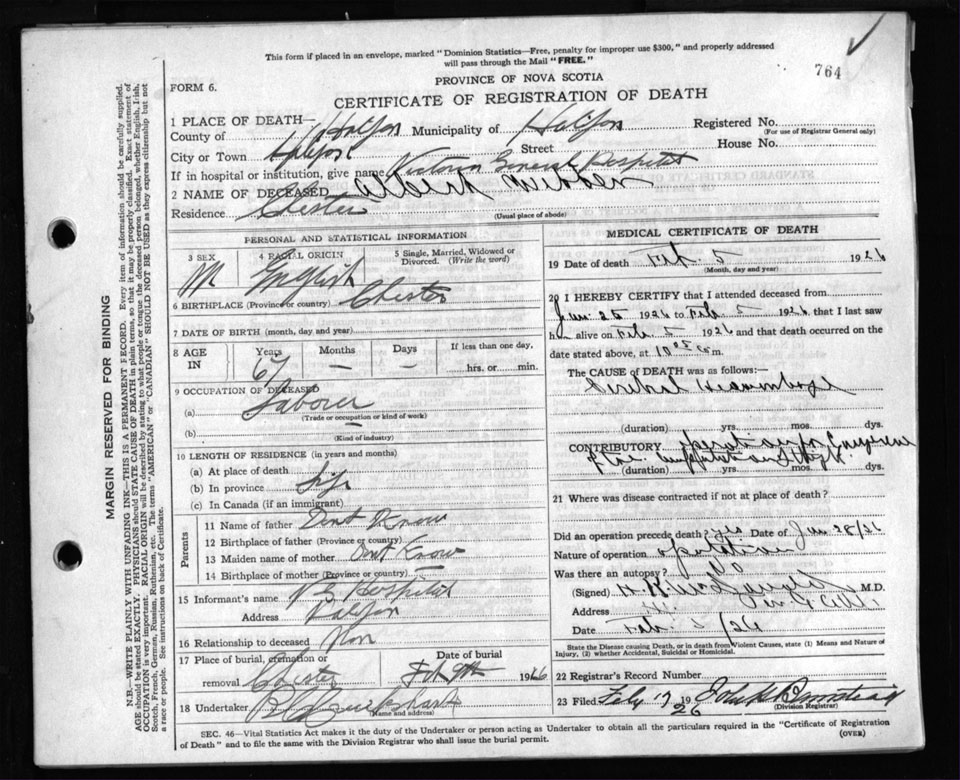 This form if placed in an envelope, marked "Dominion Statistics—Free, penalty for improper use $300," and properly addressed
will pass through the Mail "FREE."
764
FORM 6.
PROVINCE OF NOVA SCOTIA
CERTIFICATE OF REGISTRATION OF DEATH
MARGIN RESERVED FOR BINDING
N.B.—WRITE PLAINLY WITH UNFADING INK—THIS IS A PERMANENT RECORD. Every item of information should be carefully supplied.
AGE should be stated EXACTLY. PHYSICIANS should STATE CAUSE OF DEATH in plain terms, so that it may be properly classified. Exact statement of
OCCUPATION is very important. RACIAL ORIGIN will be described by stating to what people or tongue the deceased person belonged, whether English, Irish,
Scotch, French, German, Russian, Ruthenian, etc. The terms "AMERICAN" or "CANADIAN" SHOULD NOT BE USED as they express citizenship but not
a race or people. See instructions on back of Certificate.
1 PLACE OF DEATH—
County of Halifax Municipality of Halifax Registered No.
(For use of Registrar General only)
City or Town Halifax Street House No.
If in hospital or institution, give name Victoria General Hospital
2 NAME OF DECEASED Albert Webber
Residence Chester
(Usual place of abode)
PERSONAL AND STATISTICAL INFORMATION
3 SEX M
4 RACIAL ORIGIN English
5 Single, Married, Widowed or Divorced. (Write the word)
6 BIRTHPLACE (Province or country) Chester
7 DATE OF BIRTH (month, day and year)
8 AGE IN Years 67 Months — Days — If less than one day, hrs. or min.
9 OCCUPATION OF DECEASED
(a) Laborer
(Trade or occupation or kind of work)
(b)
(Kind of industry)
10 LENGTH OF RESIDENCE (in years and months)
(a) At place of death
(b) In province Life
(c) In Canada (if an immigrant)
Parents
11 Name of father Dont Know
12 Birthplace of father (Province or country)
13 Maiden name of mother Dont Know
14 Birthplace of mother (Province or country)
15 Informant's name Hospital
Address Halifax
16 Relationship to deceased Non
17 Place of burial, cremation or removal Chester
Date of burial Feb 9th 1926
18 Undertaker
(Name and address)
MEDICAL CERTIFICATE OF DEATH
19 Date of death Feb. 5 1926
(Month, day and year)
20 I HEREBY CERTIFY that I attended deceased from
Jan 25 1926 to Feb 5 1926 that I last saw
him alive on Feb 5 1926 and that death occurred on the
date stated above, at 10 m.
The CAUSE OF DEATH was as follows:—
(duration) yrs. mos. dys.
CONTRIBUTORY operation for
(duration) yrs. mos. dys.
21 Where was disease contracted if not at place of death?
Did an operation precede death? yes Date of Jan 28/26
Nature of operation
Was there an autopsy? No
(Signed) M.D.
Address
Date Feb 5/26
State the Disease causing Death, or in death from Violent Causes, state (1) Means and Nature of
Injury, (2) whether Accidental, Suicidal or Homicidal.
22 Registrar's Record Number
23 Filed Feby 17 1926 John
(Division Registrar)
SEC. 46—Vital Statistics Act makes it the duty of the Undertaker or person acting as Undertaker to obtain all the particulars required in the "Certificate of Registration
of Death" and to file the same with the Division Registrar who shall issue the burial permit.
(OVER)